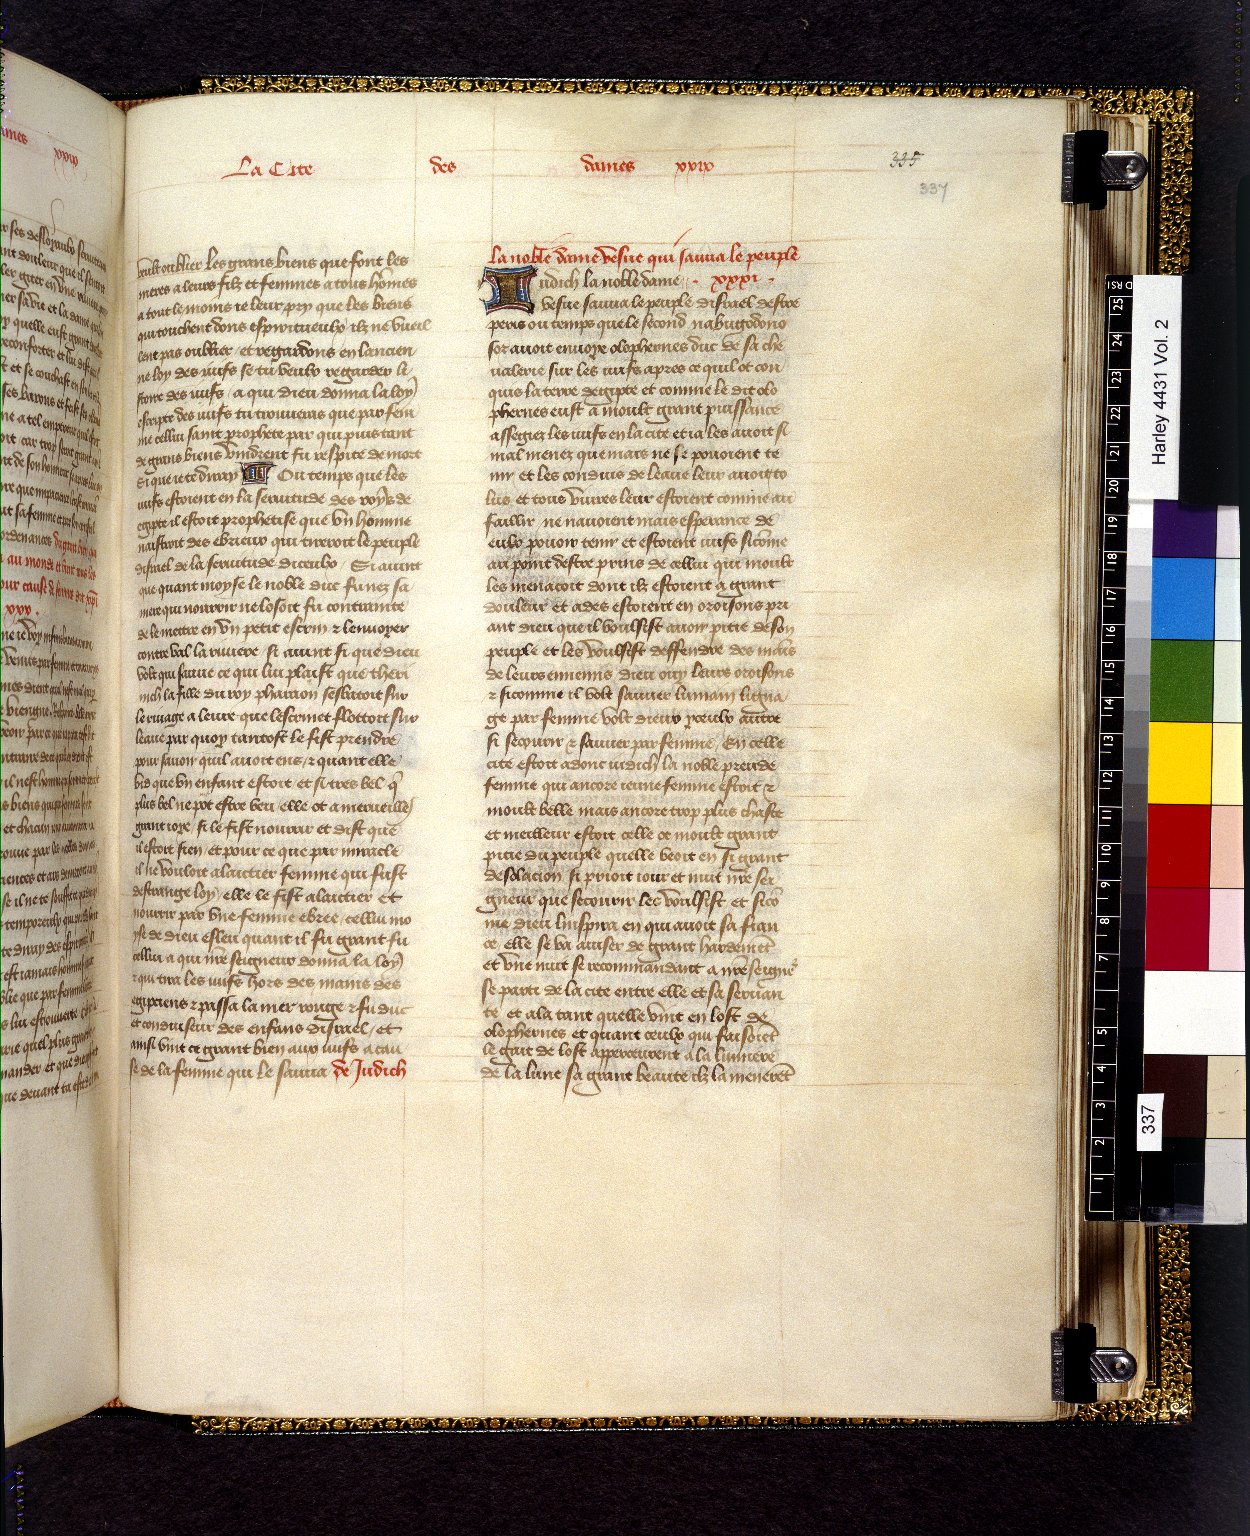 La Cite des dames xxix
335
337
veult oublier les grans biens que font les
meres a leurs filz et femmes a tous hom̄es
a tout le moins ie leur pry que les biens
qui touchent dons espirituculx ilz ne vueil
lent pas oublier / et regardons en lancien
ne loy des iuifs se tu veulx regarder li
stoire des iuifs / a qui dieu donna la loy
escripte des iuifs tu trouueras que par fem
me cellui saint prophete par qui puis tant
de grans biens vindrent fu respite de mort
si que ie te diray Ou temps que les
iuifs estoient en la seruitude des roys de
egipte il estoit prophetise que vn homme
naistroit des ebrieux qui tireroit le peuple
disrael de la seruitude diceulx / Si auint
que quant moyse le noble duc fu nez sa
mere qui nourrir ne losoit fu contrainte
de le mettre en vn petit escrin ⁊ lenuoyer
contreual la riuiere si auint si que dieu
volt qui sauue ce qui lui plaist que theri
mich la fille du roy pharaon sesbatoit sur
le riuage a leure que lescrinet flottoit sur
leaue par quoy tantost le fist prendre
pour sauoir quil auoit ens / ⁊ quant elle
vid que vn enfant estoit et si tres bel q̄
plus bel ne pot estre veu elle ot a merueilles
grant ioye / si le fist nourrir et dist que
il estoit sien / et pour ce que par miracle
il ne vouloit alaictier femme qui fust
destrange loy / elle le fist alaictier et
nourrir par vne femme ebree / cellui mo
yse de dieu esleu quant il fu grant fu
cellui a qui nr̄e seigneur donna la loy
⁊ qui tira les iuifs hors des mains des
egipciens ⁊ passa la mer rouge ⁊ fu duc
et conduiseur des enfans disrael / et
ainsi vint ce grant bien aux iuifs a cau
se de la femme qui le sauua de Judich
la noble dame vesue qui sauua le peuple
Iudich la noble dame . xxxi .
vesue sauua le peuple disrael destre
peris ou temps que le second nabugodono
sor auoit enuoye olophernes duc de sa che
ualerie sur les iuifs apres ce quil ot con
quis la terre degipte et comme le dit olo
phernes eust a moult grant puissance
assegiez les iuifs en la cite et ia les auoit si
mal menez que mais ne se pouoient te
nir et les conduis de leaue leur auoit to
lus et tous viures leur estoient comme au
faillir ne nauoient mais esperance de
eulx pouoir tenir et estoient iuifs si com̄e
au point destre prins de cellui qui moult
les menacoit dont ilz estoient a grant
douleur et ades estoient en oroisons pri
ant dieu que il voulsist auoir pitie de son
peuple et les voulsist deffendre des mais
de leurs ennemis dieu oity leurs oroisons
⁊ si comme il volt sauuer lumain ligna
ge par femme volt dieux yceulx autre
si secourir ⁊ sauuer par femme / En celle
cite estoit adonc iudich la noble preude
femme qui ancore ieune femme estoit ⁊
moult belle mais ancore trop plus chaste
et meilleur estoit celle ot moult grant
pitie du peuple quelle veoit en si grant
desolacion si prioit iour et nuit nr̄e sei
gneur que secourir les voulsist et si cō
me dieu linspira en qui auoit sa fian
ce / elle se va auiser de grant hardemēt
et vne nuit se recommandant a nr̄e seigneͬ
se parti de la cite entre elle et sa seruan
te et ala tant quelle vint en lost de
olophernes et quant ceulx qui faisoiēt
le gait de lost apperceurent a la lumiere
de la lune sa grant beaute ilz la menerēt
Harley 4431 Vol. 2
337